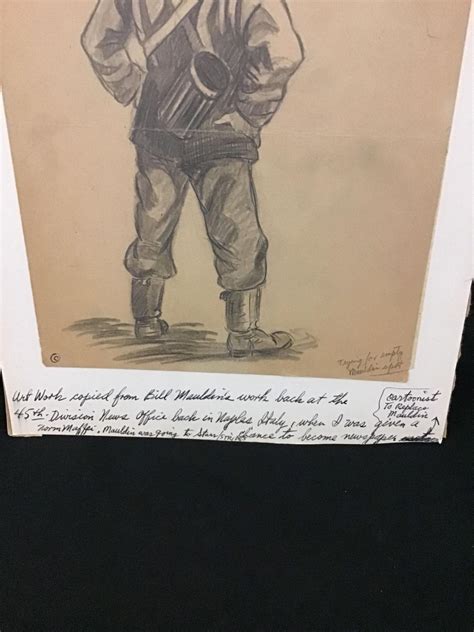 Trying for empty
Mauldin spot
Art Work copied from Bill Mauldin's work back at the
45th. Division News Office back in Naples Italy, when I was given a
Norm Maffei. Mauldin was going to Stars/ chance to become newspaper
cartoonist
To Replace
Mauldin